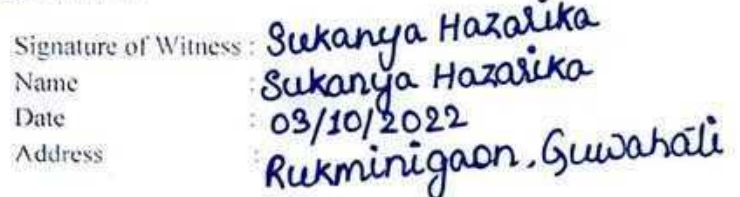 Signature of Witness : Sukanya Hazarika
Name : Sukanya Hazarika
Date : 03/10/2022
Address : Rukminigaon, Guwahati